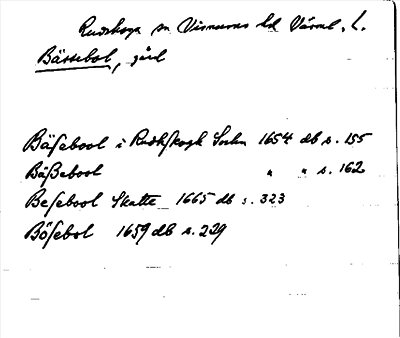 Rudskoga sn Visnums hd Värml. l.
Bässebol, gård
Bäſebool i Rudhſkogh Sochn 1654 db s. 155
Bäßebool " " s. 162
Beſebool Skatte 1665 db s. 323
Böſebol 1659 db s. 229